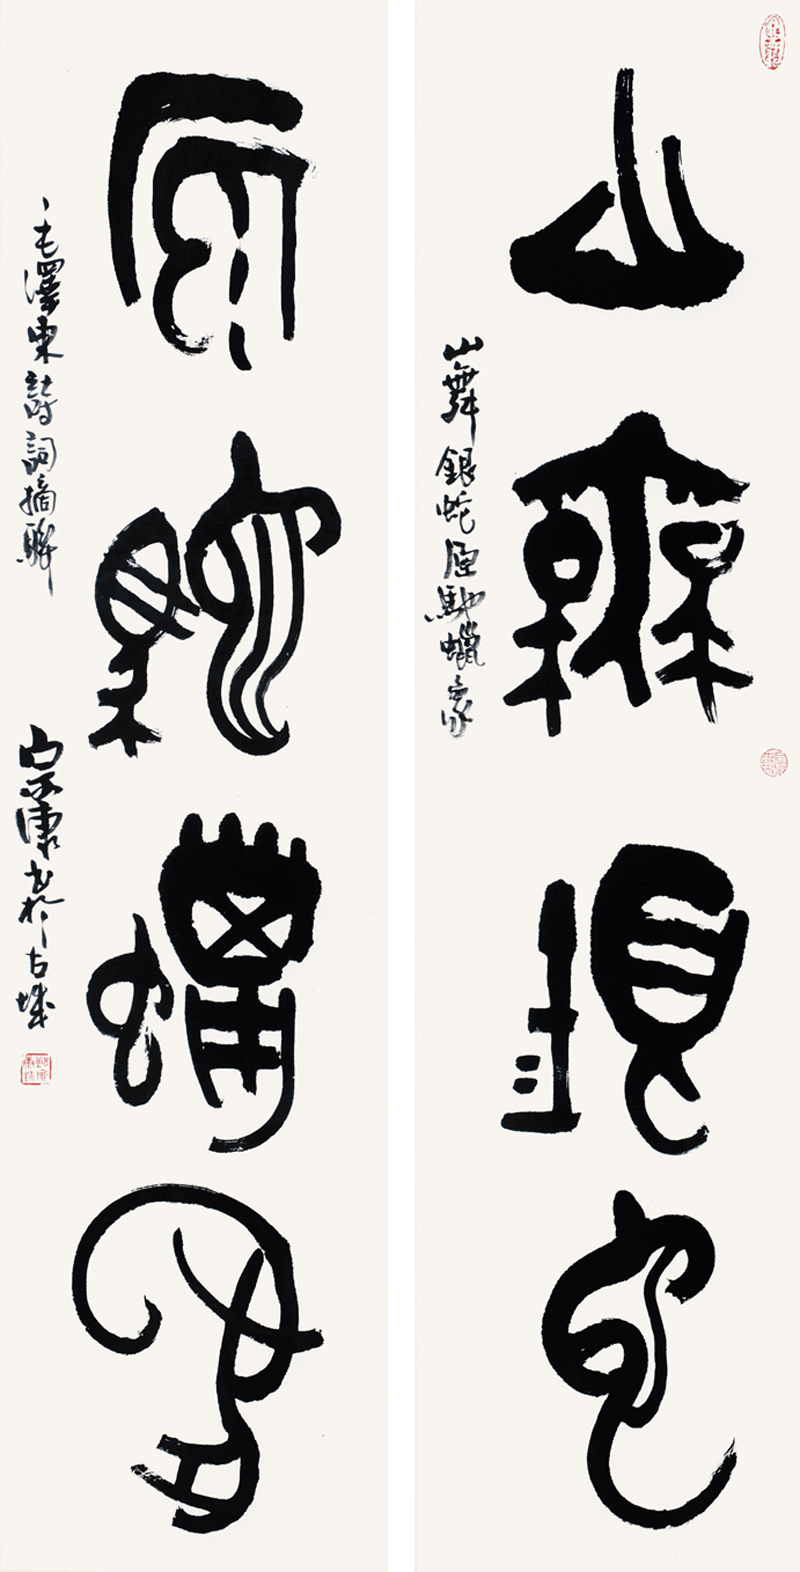 山舞銀蛇
山舞銀蛇原馳蠟象
原馳蠟象
毛澤東詩詞摘聯
書於古城